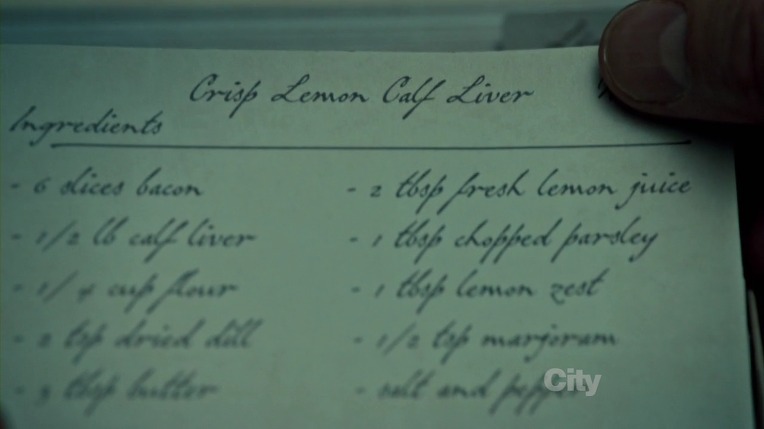 Crisp Lemon Calf Liver
Ingredients
- 6 slices bacon
- 1/2 lb calf liver
- 1/4 cup flour
- 2 tsp dried dill
- 3 tbsp butter
- 2 tbsp fresh lemon juice
- 1 tbsp chopped parsley
- 1 tbsp lemon zest
- 1/2 tsp marjoram
- salt and pepper
City